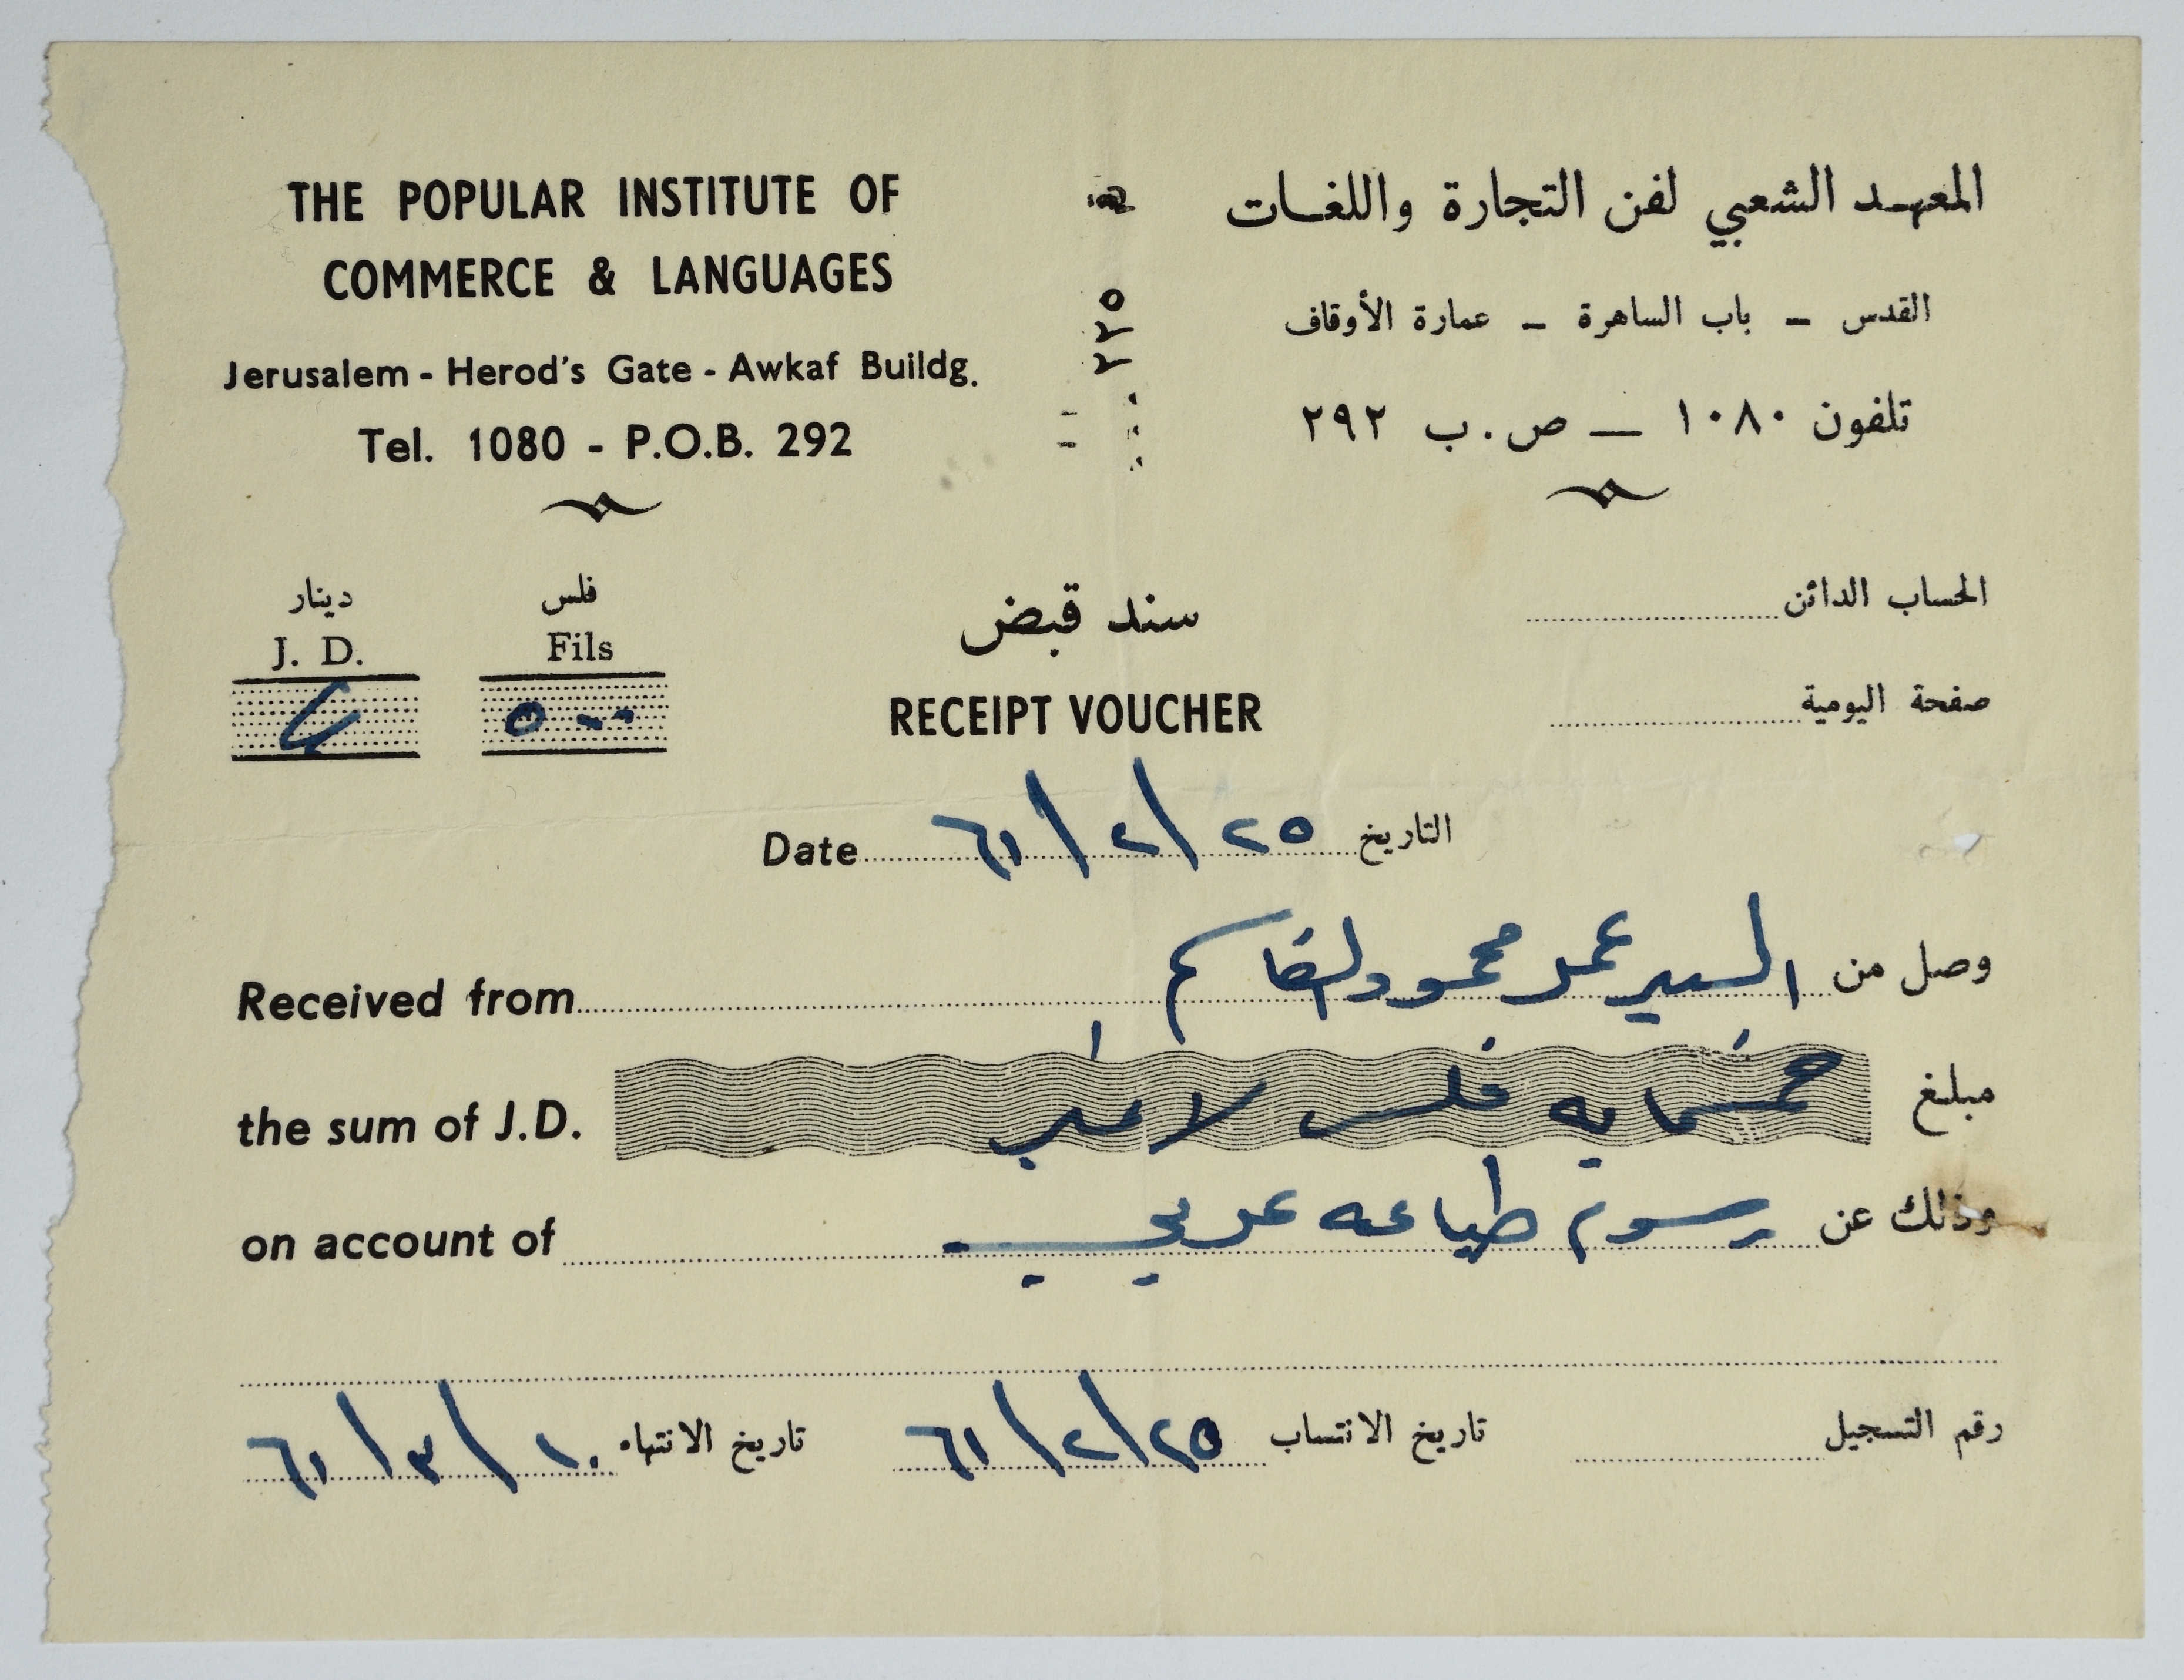 THE POPULAR INSTITUTE OF
COMMERCE & LANGUAGES
Jerusalem - Herod's Gate - Awkaf Buildg.
Tel. 1080 - P.O.B. 292
المعهد الشعبي لفن التجارة واللغات
القدس – باب الساهرة – عمارة الأوقاف
تلفون ١٠٨٠ – ص.ب ٢٩٢
دينار فلس
J. D. Fils
٥٠٠
سند قبض
RECEIPT VOUCHER
الحساب الدائن
صفحة اليومية
Date ٢٥/٢/٦١ التاريخ
وصل من السيد عمر محمود القاسم
Received from
مبلغ خمسماية فلس لا غير
the sum of J.D.
وذلك عن رسوم طباعه عربي
on account of
رقم التسجيل
تاريخ الانتساب ٢٥/٢/٦١
تاريخ الانتهاء ١٠/٣/٦١